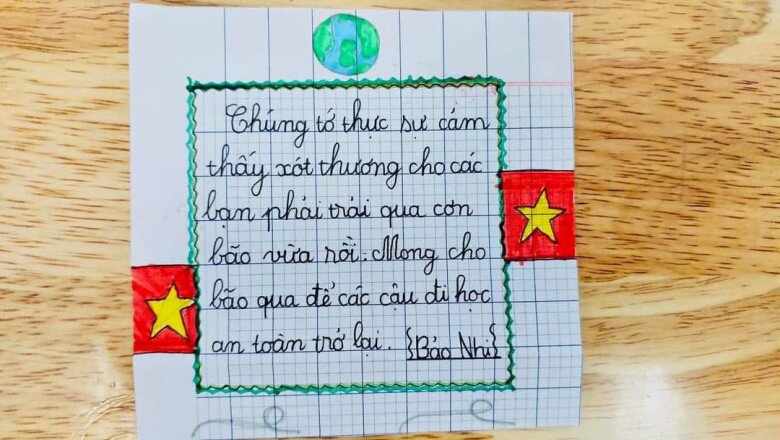 Chúng tớ thực sự cảm
thấy xót thương cho các
bạn phải trải qua cơn
bão vừa rồi. Mong cho
bão qua để các cậu đi học
an toàn trở lại. {Bảo Nhi}